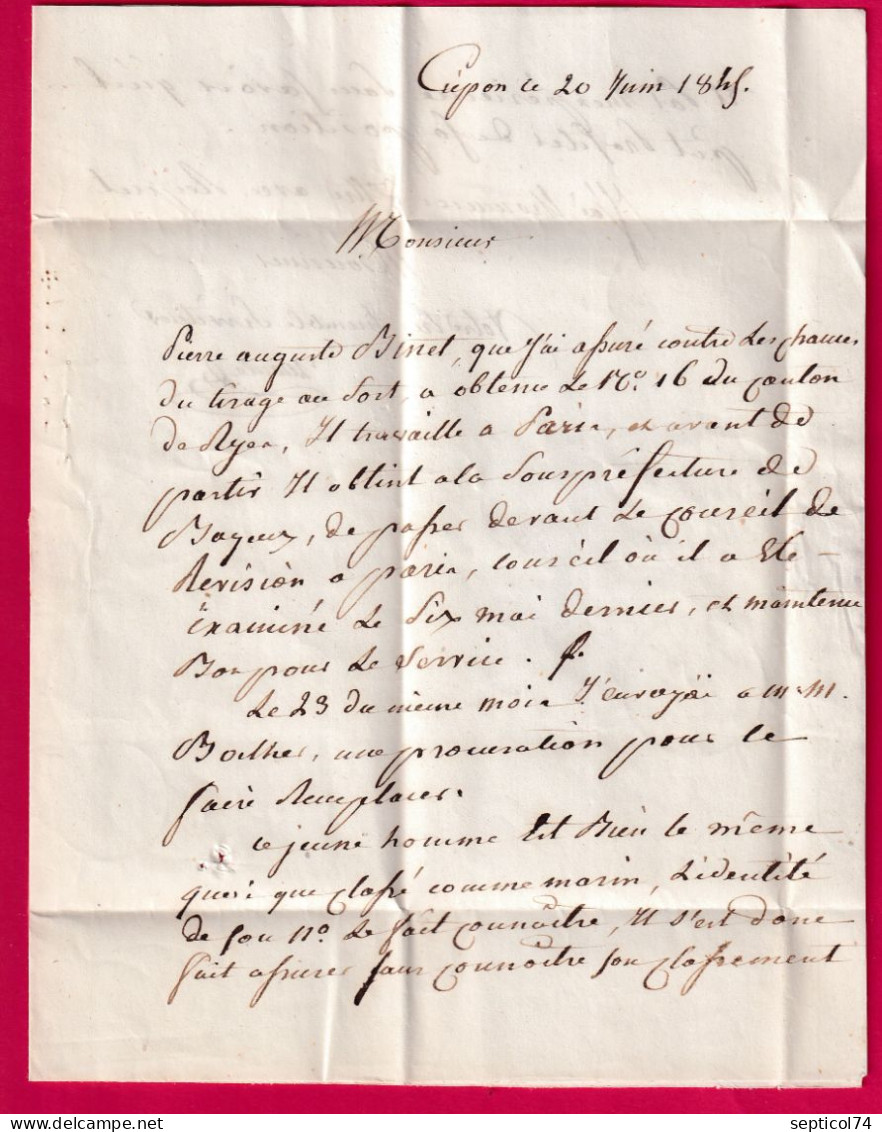 Crépon ce 20 Juin 1845.
Monsieur
Pierre auguste Binet, que J'ai assuré contre Les chances
Du tirage au Sort, a obtenu Le No. 16 du canton
de Ryes, Il travaille a Paris, et avant de
partir Il obtint a la Souspréfecture de
Bayeux, de passer devant Le Conseil de
Révision a paris, conseil où il a Eté
Examiné Le Six mai dernier, et maintenu
Bon pour Le Service.
Le 23 du même mois J'envoyai a m.m.
une procuration pour le
faire Remplacer.
ce jeune homme Est Bien le même
que classé comme marin, L'identité
de son no. Le fait connaître, Il s'est donc
fait assurer sans connaître son classement
septicol74